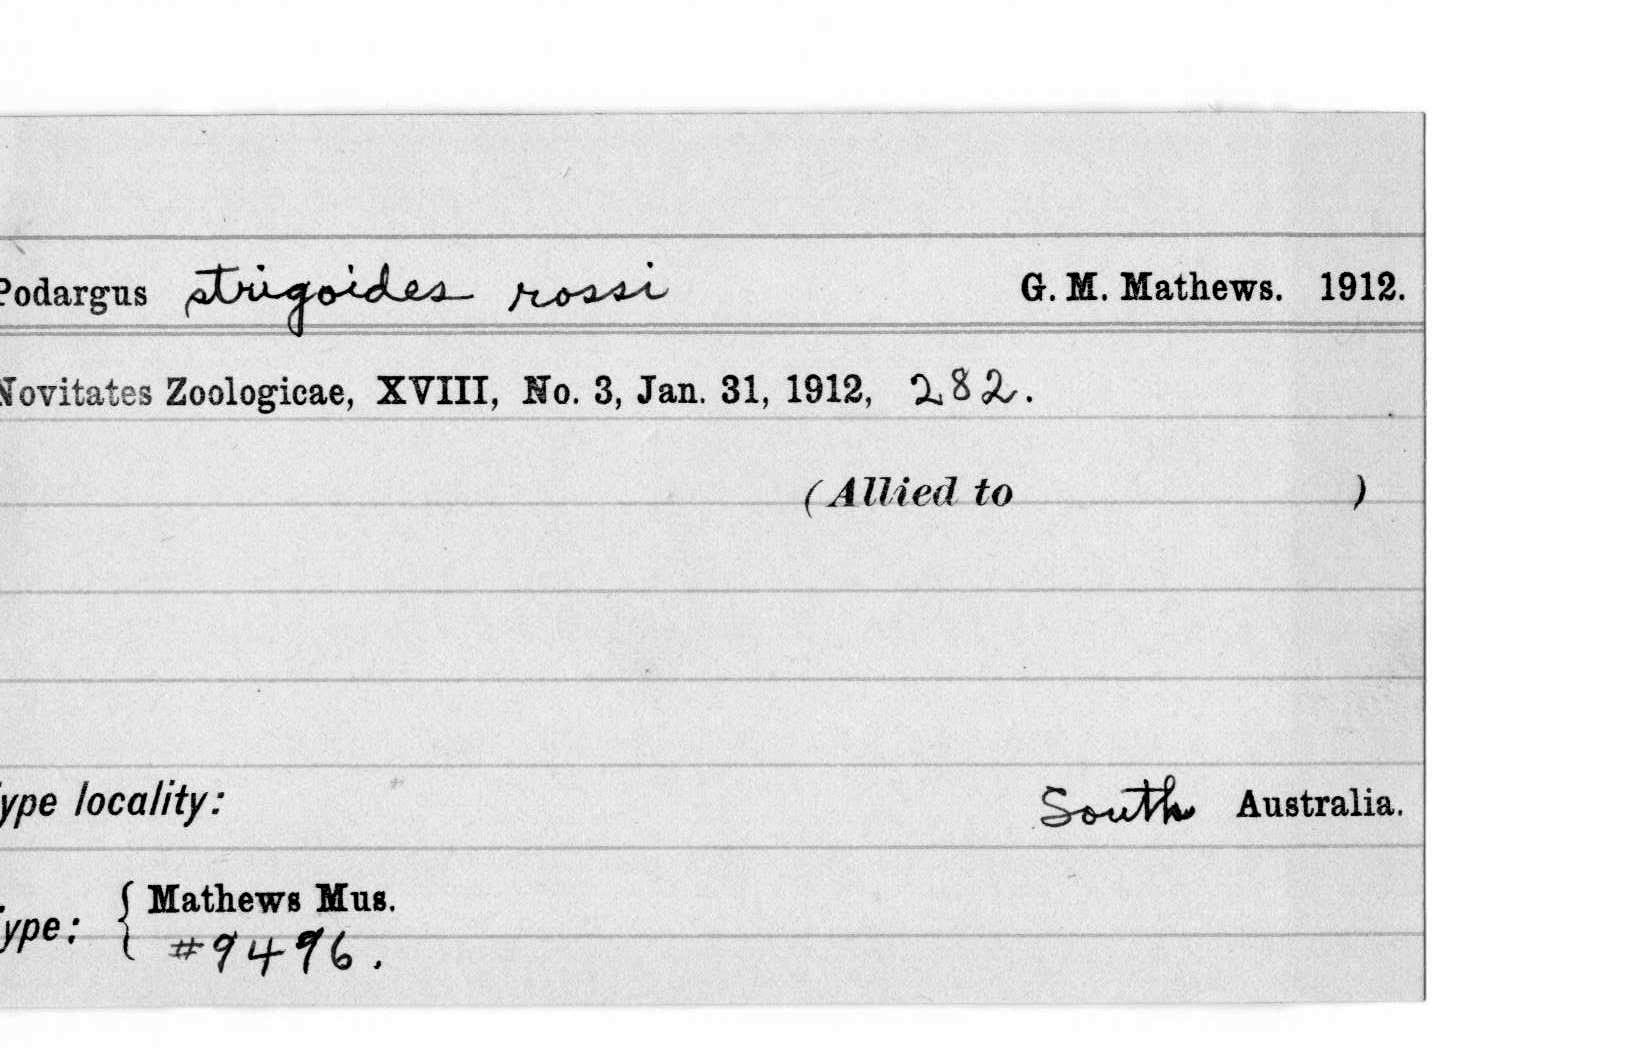 Podargus strigoides rossi G. M. Mathews. 1912.
Novitates Zoologicae, XVIII, No. 3, Jan. 31, 1912, 282.
(Allied to )
ype locality: South Australia.
ype: { Mathews Mus.
#9496.